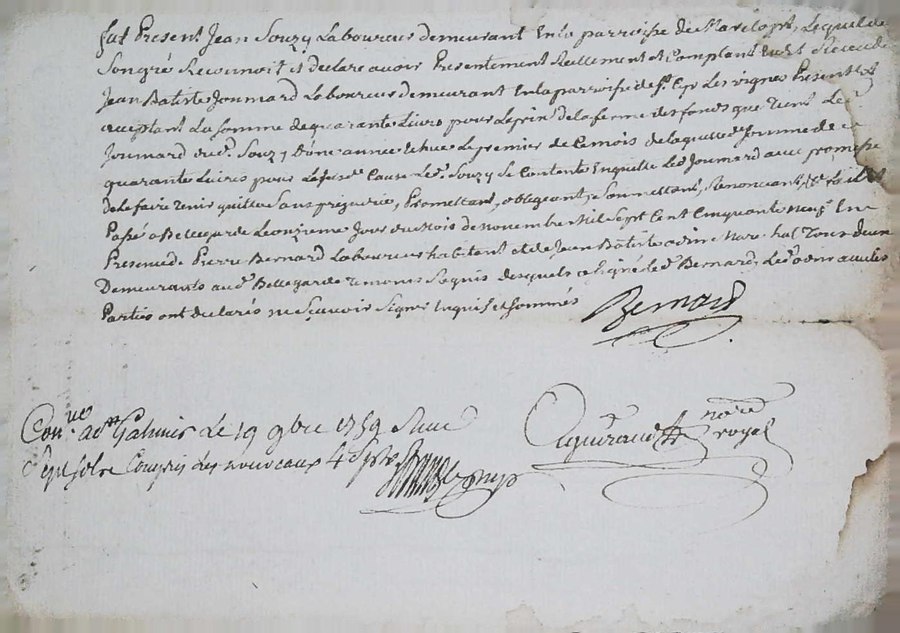 fut Present Jean Souzy Laboureur demeurant En la parroisse de Marclopt, Lequel de
Son gré Reconnoit et declare avoir Presentement Reellement et Comptant Receu de
Jean Batiste Joumard Laboureur demeurant En la parroisse de St Cyr Les vignes Present et
acceptant La somme de quarante Livres pour Le prix de la ferme des fonds que tient Led.
Joumard dud. Souzy d'une année Echue Le premier de Ce mois de laquelle Somme de
quarante Livres pour Lad. Cause Led. Souzy Se Contente En quitte Led. Joumard avec promesse
de le faire tenir quitte Sans prejudice, Promettant, obligeant, Soumettant, Renonceant, &c. fait et
Passé a Bellegarde Le onzieme Jour du Mois de novembre Mil Sept Cent Cinquante Neuf En
Presence de Pierre Bernard Laboureur habitant et de Jean Batiste Marechal Tous deux
Demeurants aud. Bellegarde temoins Requis desquels a Signé Led. Bernard, Led. avec Les
Parties ont declarés ne Sçavoir Signer Enquis et Sommés
Bernard
Con.lé a St Galmier Le 19 9bre 1759 Receu
Sept sols Compris les nouveaux 4 s.
notre
royal